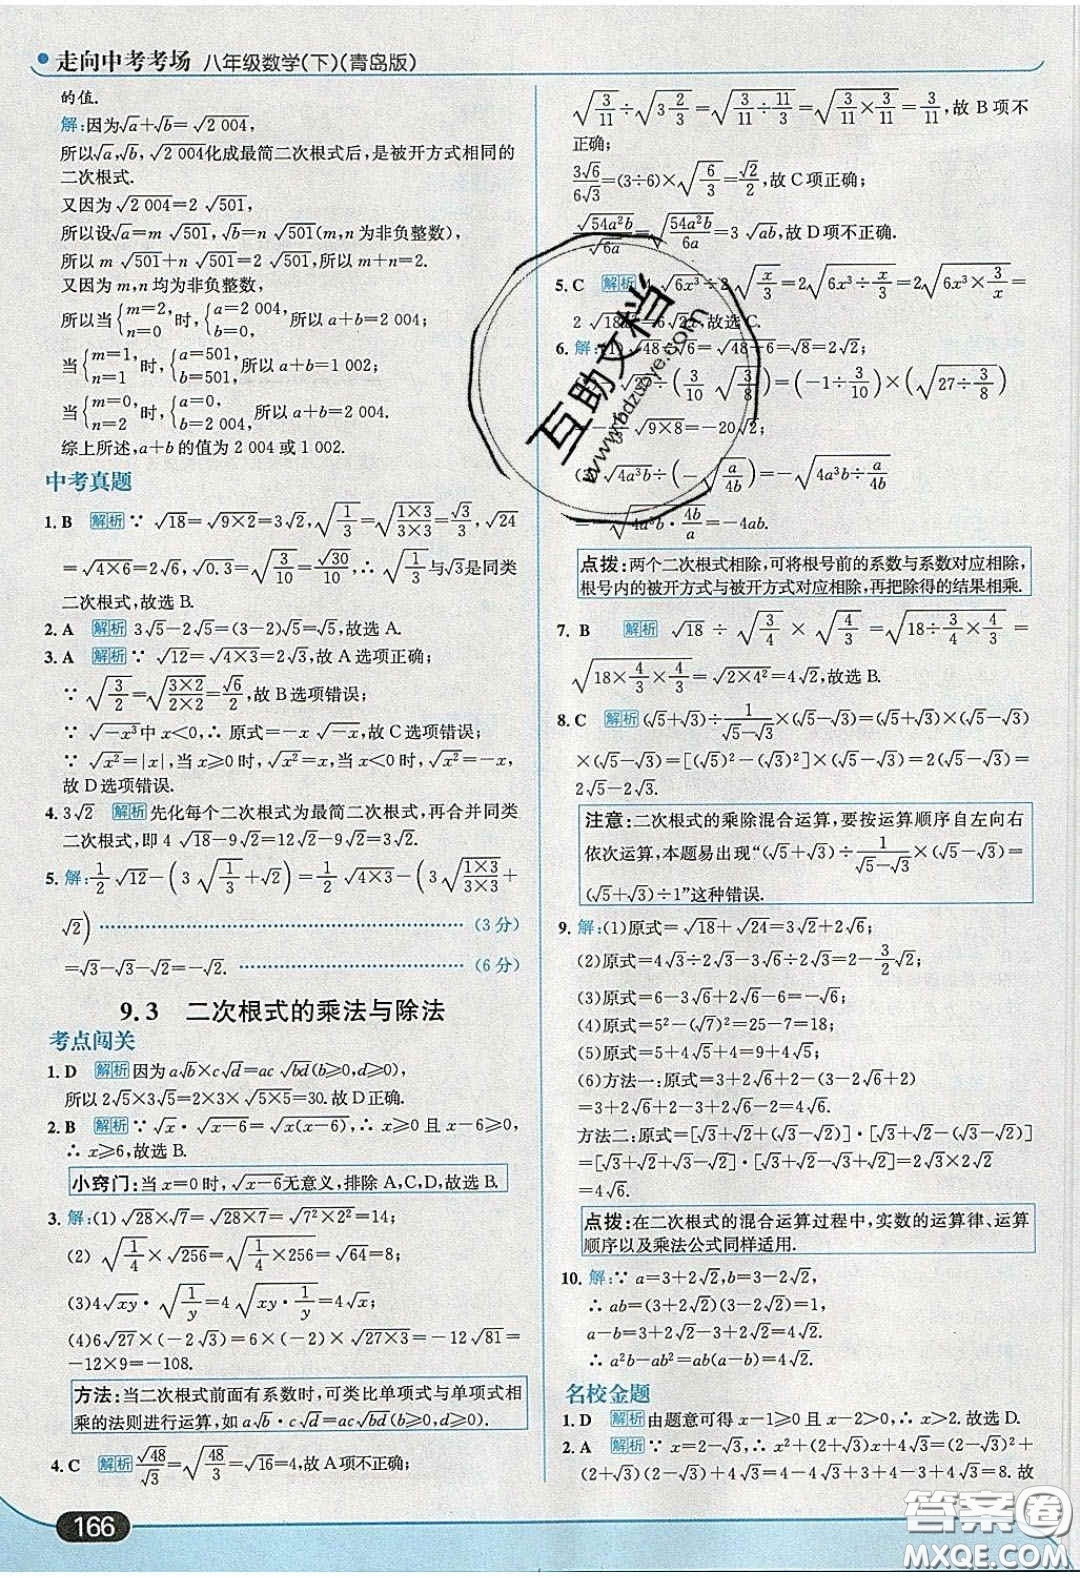 走向中考考场 八年级数学(下)(青岛版)
的值.
解:因为√a+√b=√2 004,
所以√a,√b,√2 004化成最简二次根式后,是被开方式相同的
二次根式.
又因为√2 004=2 √501,
所以设√a=m √501,√b=n √501(m,n为非负整数),
所以 m √501+n √501=2 √501,所以 m+n=2.
又因为 m,n 均为非负整数,
所以当{m=2, n=0 时,{a=2 004, b=0, 所以 a+b=2 004;
当{m=1, n=1 时,{a=501, b=501, 所以 a+b=1 002;
当{m=0, n=2 时,{a=0, b=2 004, 所以 a+b=2 004.
综上所述,a+b 的值为 2 004 或 1 002.
中考真题
1. B 解析 ∵ √18=√(9×2)=3√2,√(1/3)=√((1×3)/(3×3))=√3/3,√24
=√(4×6)=2√6,√0.3=√(3/10)=√30/10,∴ √(1/3)与√3是同类
二次根式,故选 B.
2. A 解析 3√5-2√5=(3-2)√5=√5,故选 A.
3. A 解析 ∵ √12=√(4×3)=2√3,故 A 选项正确;
∵ √(3/2)=√((3×2)/(2×2))=√6/2,故 B 选项错误;
∵ √(-x³)中 x<0,∴ 原式=-x √(-x),故 C 选项错误;
∵ √x²=|x|,当 x≥0时,√x²=x,当 x<0时,√x²=-x,
故 D 选项错误.
4. 3√2 解析 先化每个二次根式为最简二次根式,再合并同类
二次根式,即 4 √18-9√2=12√2-9√2=3√2.
5. 解:1/2 √12-(3 √(1/3)+√2)=1/2 √(4×3)-(3√((1×3)/(3×3))+
√2) ………………………………………… (3 分)
=√3-√3-√2=-√2. ………………………… (6 分)
9.3 二次根式的乘法与除法
考点闯关
1. D 解析 因为 a√b×c√d=ac √bd(b≥0,d≥0),
所以 2√5×3√5=2×3× √(5×5)=30.故 D 正确.
2. B 解析 ∵ √x · √(x-6)=√(x(x-6)),∴ x≥0 且 x-6≥0,
∴ x≥6,故选 B.
小窍门:当 x=0 时,√(x-6)无意义,排除 A,C,D,故选 B.
3. 解:(1) √28×√7=√(28×7)=√(7²×2²)=14;
(2) √(1/4)× √256=√(1/4×256)=√64=8;
(3)4√xy·√(1/y)=4√(xy·1/y)=4√x;
(4)6√27×(-2√3)=6×(-2)× √(27×3)=-12 √81=
-12×9=-108.
方法:当二次根式前面有系数时,可类比单项式与单项式相
乘的法则进行运算,如 a√b·c√d=ac√bd(b≥0,d≥0).
4. C 解析 √48/√3=√(48/3)=√16=4,故 A 项不正确;
√(3/11)÷√(3 2/3)=√(3/11÷11/3)=√(3/11×3/11)=3/11,故 B 项不
正确;
3√6/6√3=(3÷6)×√(6/3)=√2/2,故 C 项正确;
√(54a²b)/√6a=√(54a²b/6a)=3 √ab,故 D 项不正确.
5. C 解析 4 √6x³÷2√(x/3)=2√(6x³÷x/3)=2√(6x³×3/x)=
2 √18x²=6√2x,故选 C.
6. 解:(1) √48÷√6=√(48÷6)=√8=2√2;
÷(3/10 √(3/8))=(-1÷3/10)×(√(27÷3/8))
√(9×8)=-20√2;
(3) √4a³b÷(-√(a/4b))=-√(4a³b÷a/4b)
=-√(4a³b·4b/a)=-4ab.
点拨:两个二次根式相除,可将根号前的系数与系数对应相除,
根号内的被开方式与被开方式对应相除,再把除得的结果相乘.
7. B 解析 √18 ÷ √(3/4) × √(4/3) =√(18÷3/4×4/3)=
√(18×4/3×4/3)=√(2×4²)=4√2,故选 B.
8. C 解析 (√5+√3)÷1/(√5-√3)×(√5-√3)=(√5+√3)×(√5-√3)
×(√5-√3)=[(√5)²-(√3)²]×(√5-√3)=2(√5-√3)=
2√5-2√3.
注意:二次根式的乘除混合运算,要按运算顺序自左向右
依次运算,本题易出现“(√5+√3)÷1/(√5-√3)×(√5-√3)=
(√5+√3)÷1”这种错误.
9. 解:(1)原式=√18+√24=3√2+2√6;
(2)原式=4√3÷2√3-6√2÷4√3=2-3/2√2;
(3)原式=6-3√6+2√6-6=-√6;
(4)原式=5²-(√7)²=25-7=18;
(5)原式=5+4√5+4=9+4√5;
(6)方法一:原式=(3+2√6+2)-(3-2√6+2)
=3+2√6+2-3+2√6-2=4√6.
方法二:原式=[√3+√2+(√3-√2)]·[√3+√2-(√3-√2)]
=[√3+√2+√3-√2]·[√3+√2-√3+√2]=2√3×2√2
=4√6.
点拨:在二次根式的混合运算过程中,实数的运算律、运算
顺序以及乘法公式同样适用.
10. 解:∵ a=3+2√2,b=3-2√2,
∴ ab=(3+2√2)(3-2√2)=1,
a-b=3+2√2-3+2√2=4√2.
∴ a²b-ab²=ab(a-b)=4√2.
名校金题
1. D 解析 由题意可得 x-1≥0 且 x-2>0,∴ x>2.故选 D.
2. A 解析 ∵ x=2-√3,∴ x²+(2+√3)x+4√3=(2-√3)²+
(2+√3)(2-√3)+4√3=4-4√3+3+4-3+4√3=8.故
166
互助文档
www.bdzuoye.com
答案圈
MXQE.COM